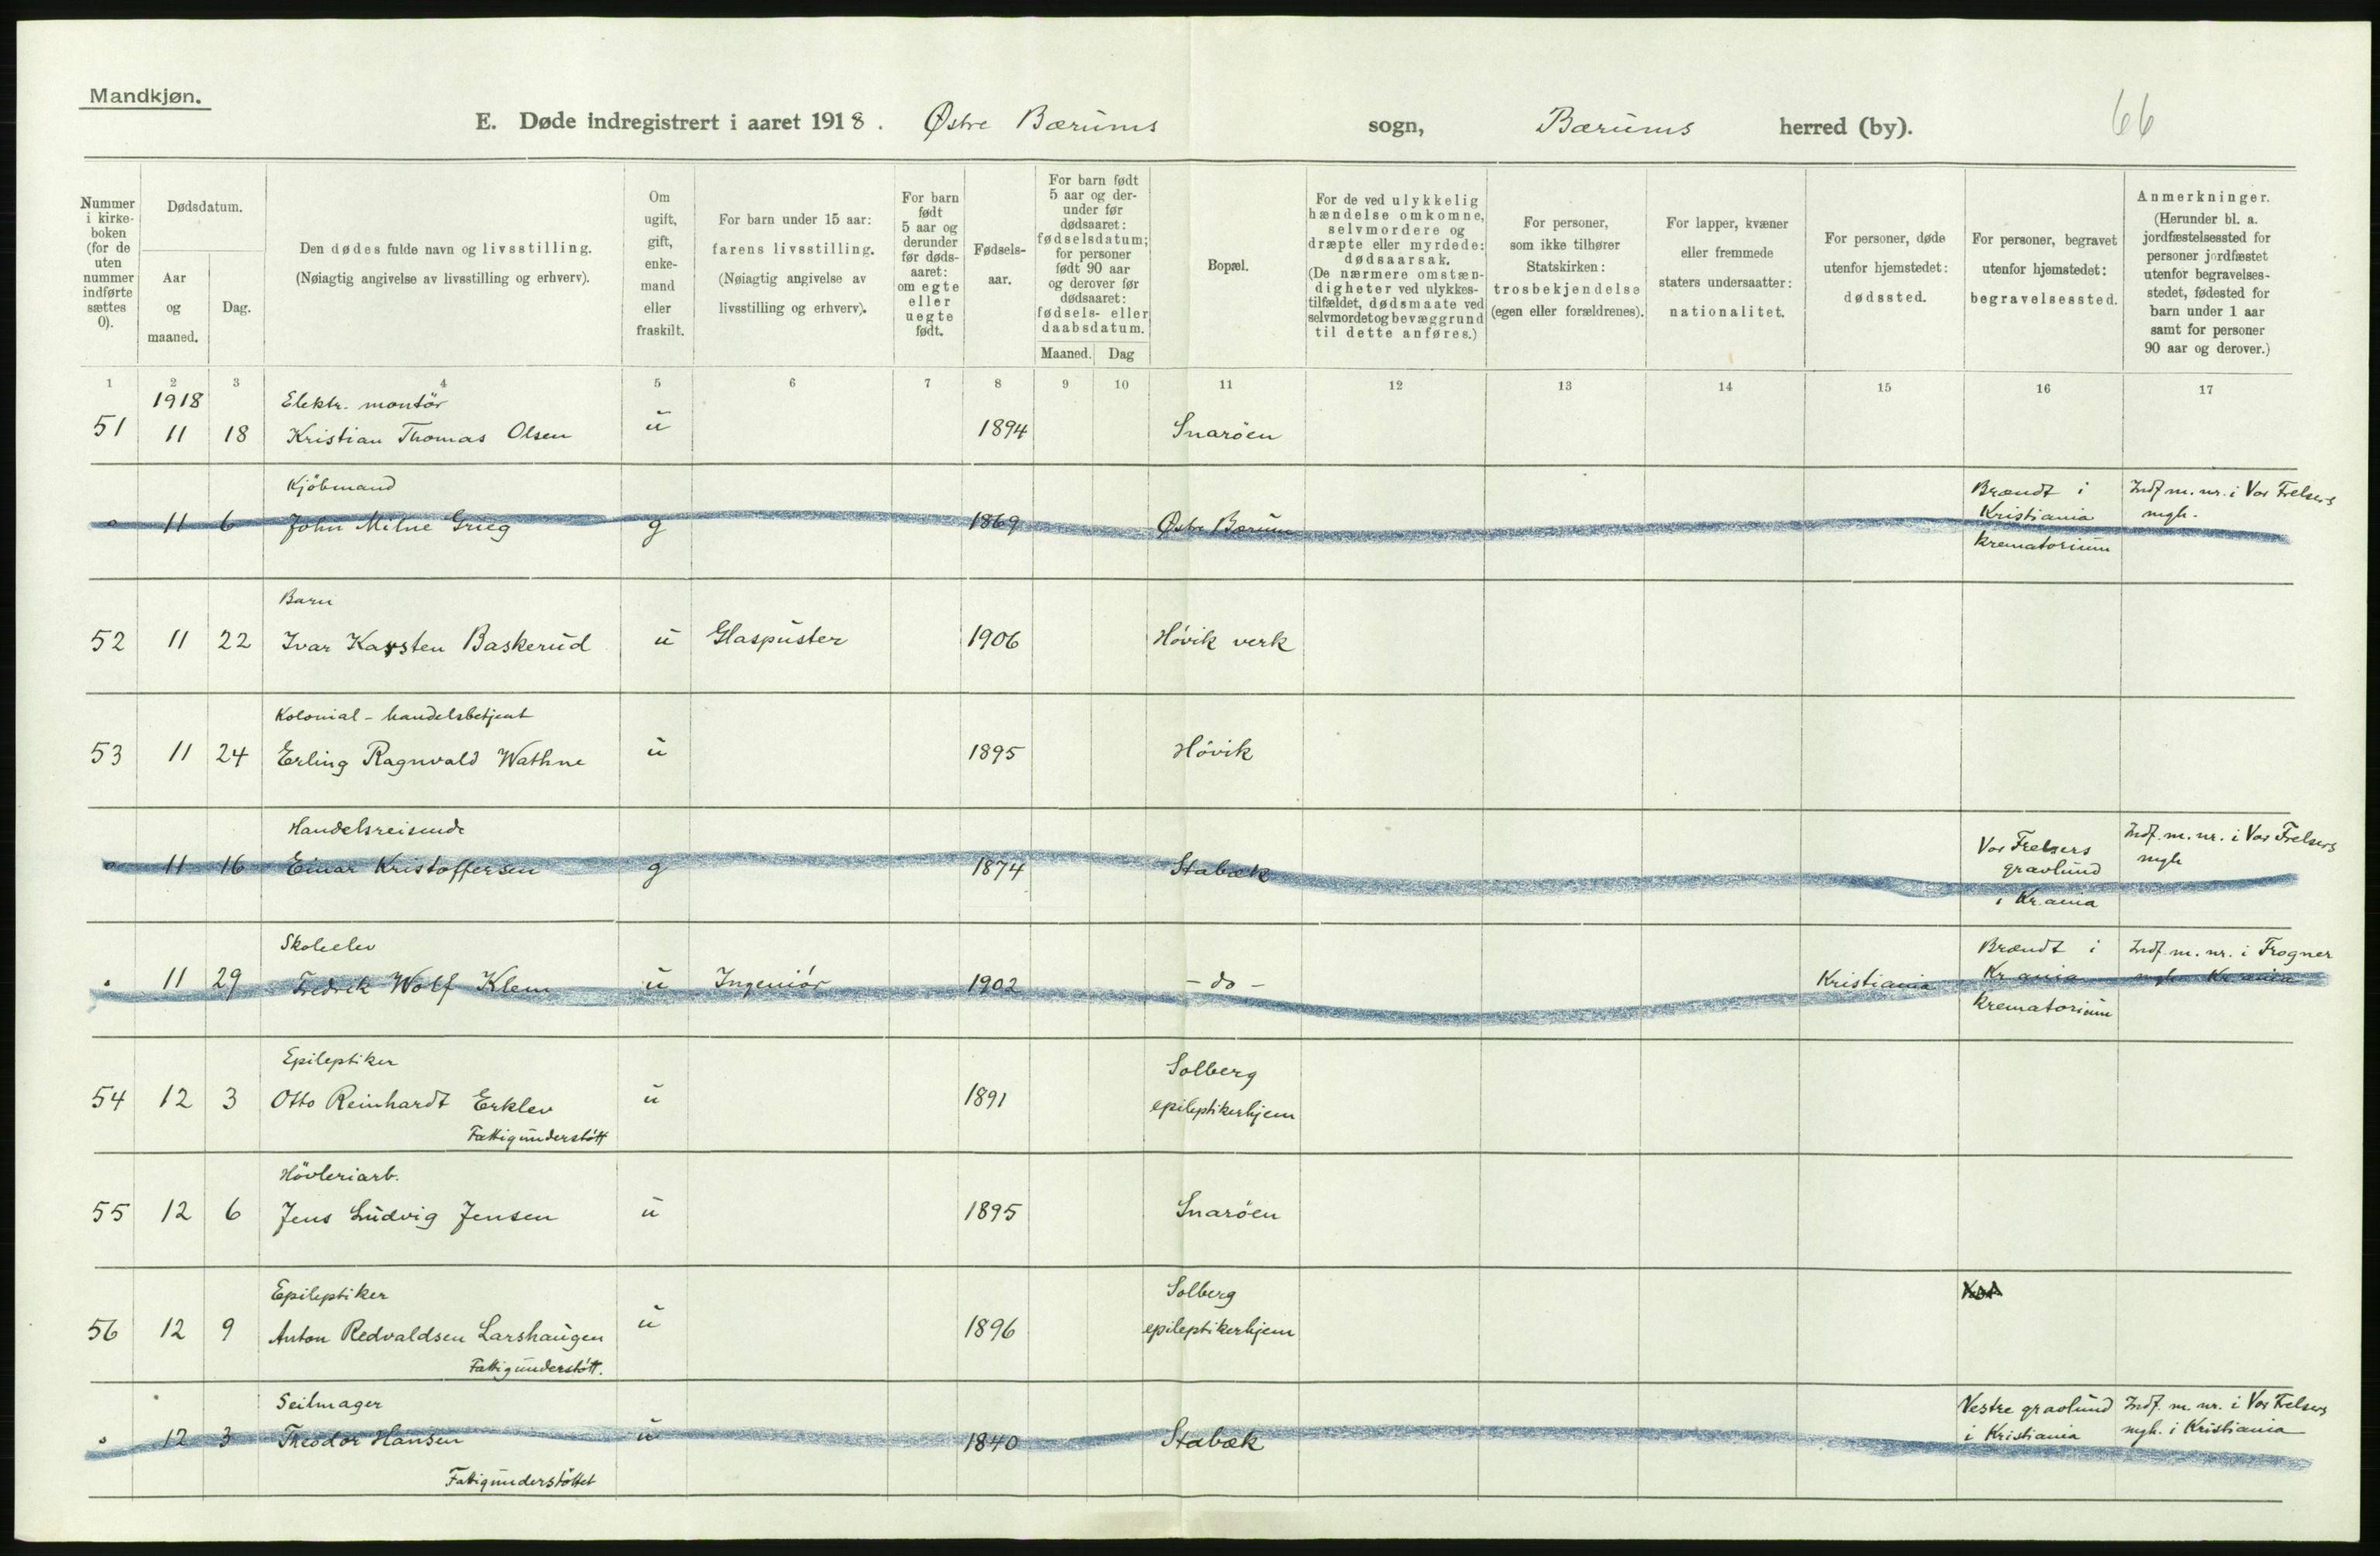 Mandkjøn.
E. Døde indregistrert i aaret 1918. Østre Bærums sogn, Bærums herred (by). 66
Nummer i kirke-boken (for de uten nummer indførte sættes 0).
Dødsdatum.
Aar og maaned.
Dag.
Den dødes fulde navn og livsstilling.
(Nøiagtig angivelse av livsstilling og erhverv).
Om ugift, gift, enke-mand eller fraskilt.
For barn under 15 aar: farens livsstilling.
(Nøiagtig angivelse av livsstilling og erhverv).
For barn født 5 aar og derunder før døds-aaret: om egte eller uegte født.
Fødsels-aar.
For barn født 5 aar og der-under før dødsaaret: fødselsdatum; for personer født 90 aar og derover før dødsaaret: fødsels- eller daabsdatum.
Maaned. Dag
Bopæl.
For de ved ulykkelig hændelse omkomne, selvmordere og dræpte eller myrdede: dødsaarsak.
(De nærmere omstæn-digheter ved ulykkes-tilfældet, dødsmaate ved selvmordet og bevæggrund til dette anføres.)
For personer, som ikke tilhører Statskirken: trosbekjendelse (egen eller forældrenes).
For lapper, kvæner eller fremmede staters undersaatter: nationalitet.
For personer, døde utenfor hjemstedet: dødssted.
For personer, begravet utenfor hjemstedet: begravelsessted.
Anmerkninger.
(Herunder bl. a. jordfæstelsessted for personer jordfæstet utenfor begravelses-stedet, fødested for barn under 1 aar samt for personer 90 aar og derover.)
1 2 3 4 5 6 7 8 9 10 11 12 13 14 15 16 17
1918 Elektr. montör
51 11 18 Kristian Thomas Olsen u 1894 Snaröen
Kjöbmand Brændt i Indf. m. nr. i Vor Frelsers
0 11 6 John Milne Grieg g 1869 Østre Bærum Kristiania mgh.
krematorium
Barn
52 11 22 Ivar Karsten Baskerud u Glaspuster 1906 Hövik verk
Kolonial-handelsbetjent
53 11 24 Erling Ragnvald Wathne u 1895 Hövik
Handelsreisende Vor Frelsers Indf. m. nr. i Vor Frelsers
0 11 16 Einar Kristoffersen g 1874 Stabæk gravlund mgh
i Kr.ania
Skoleelev Brændt i Indf. m. nr. i Frogner
0 11 29 Fredrik Wolf Klem u Ingeniör 1902 - do - Kristiania Kr.ania mgh. Kr.ania
krematorium
Epileptiker Solberg
54 12 3 Otto Reinhardt Erklev u 1891 epileptikerhjem
Fattigunderstött
Hövleriarb.
55 12 6 Jens Ludvig Jensen u 1895 Snaröen
Epileptiker Solberg
56 12 9 Anton Redvaldsen Larshaugen u 1896 epileptikerhjem
Fattigunderstött.
Seilmager Vestre gravlund Indf. m. nr. i Vor Frelsers
0 12 3 Theodor Hansen u 1840 Stabæk i Kristiania mgh. i Kristiania
Fattigunderstöttet